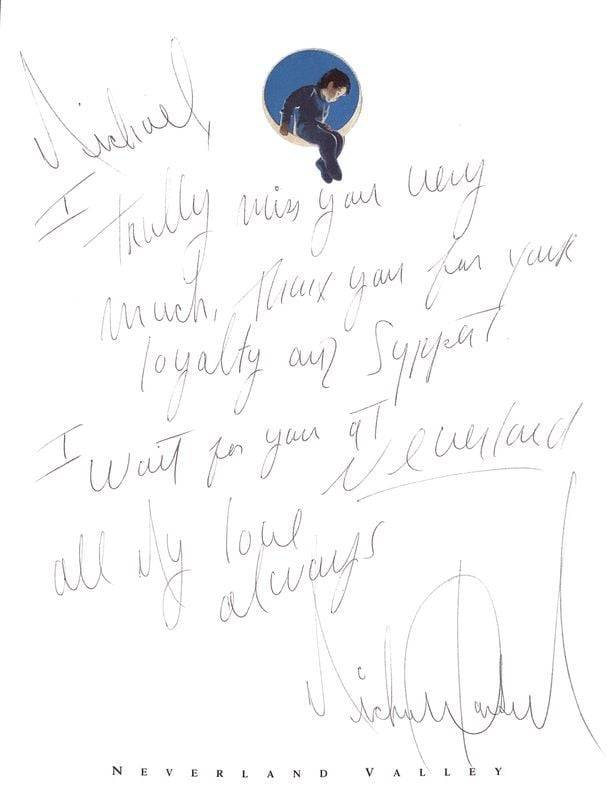 Michael,
I trully miss you very
much, Thank you for your
loyalty and Support.
I Wait for you at Neverland
all My love
always
Michael Jackson
NEVERLAND VALLEY